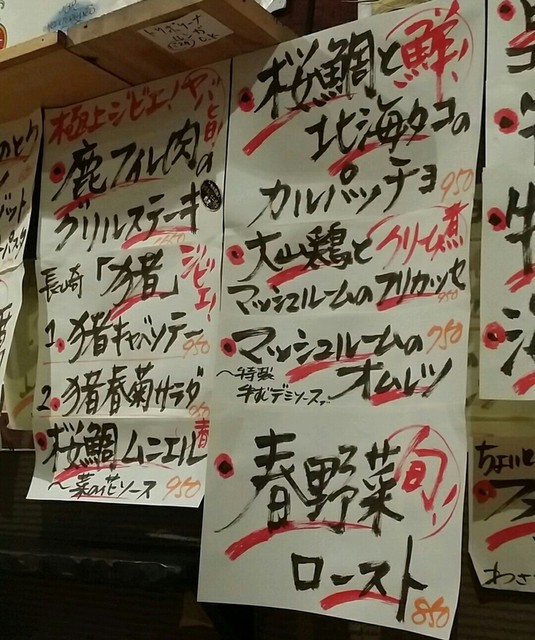 桜鯛と
鮮!
北海タコの
カルパッチョ
950
大山鶏と
クリーム煮
マッシュルームのフリカッセ
950
マッシュルームの
750
オムレツ
〜特製
牛すじデミソース
春野菜
旬!
ロースト
850
極上ジビエ!ヤバ旨!
鹿フィレ肉の
グリルステーキ
長崎「猪」
ジビエ!
1. 猪キャベツテー
950
2. 猪春菊サラダ
桜鯛ムニエル
春
〜菜の花ソース
950
ちょいと
わさ